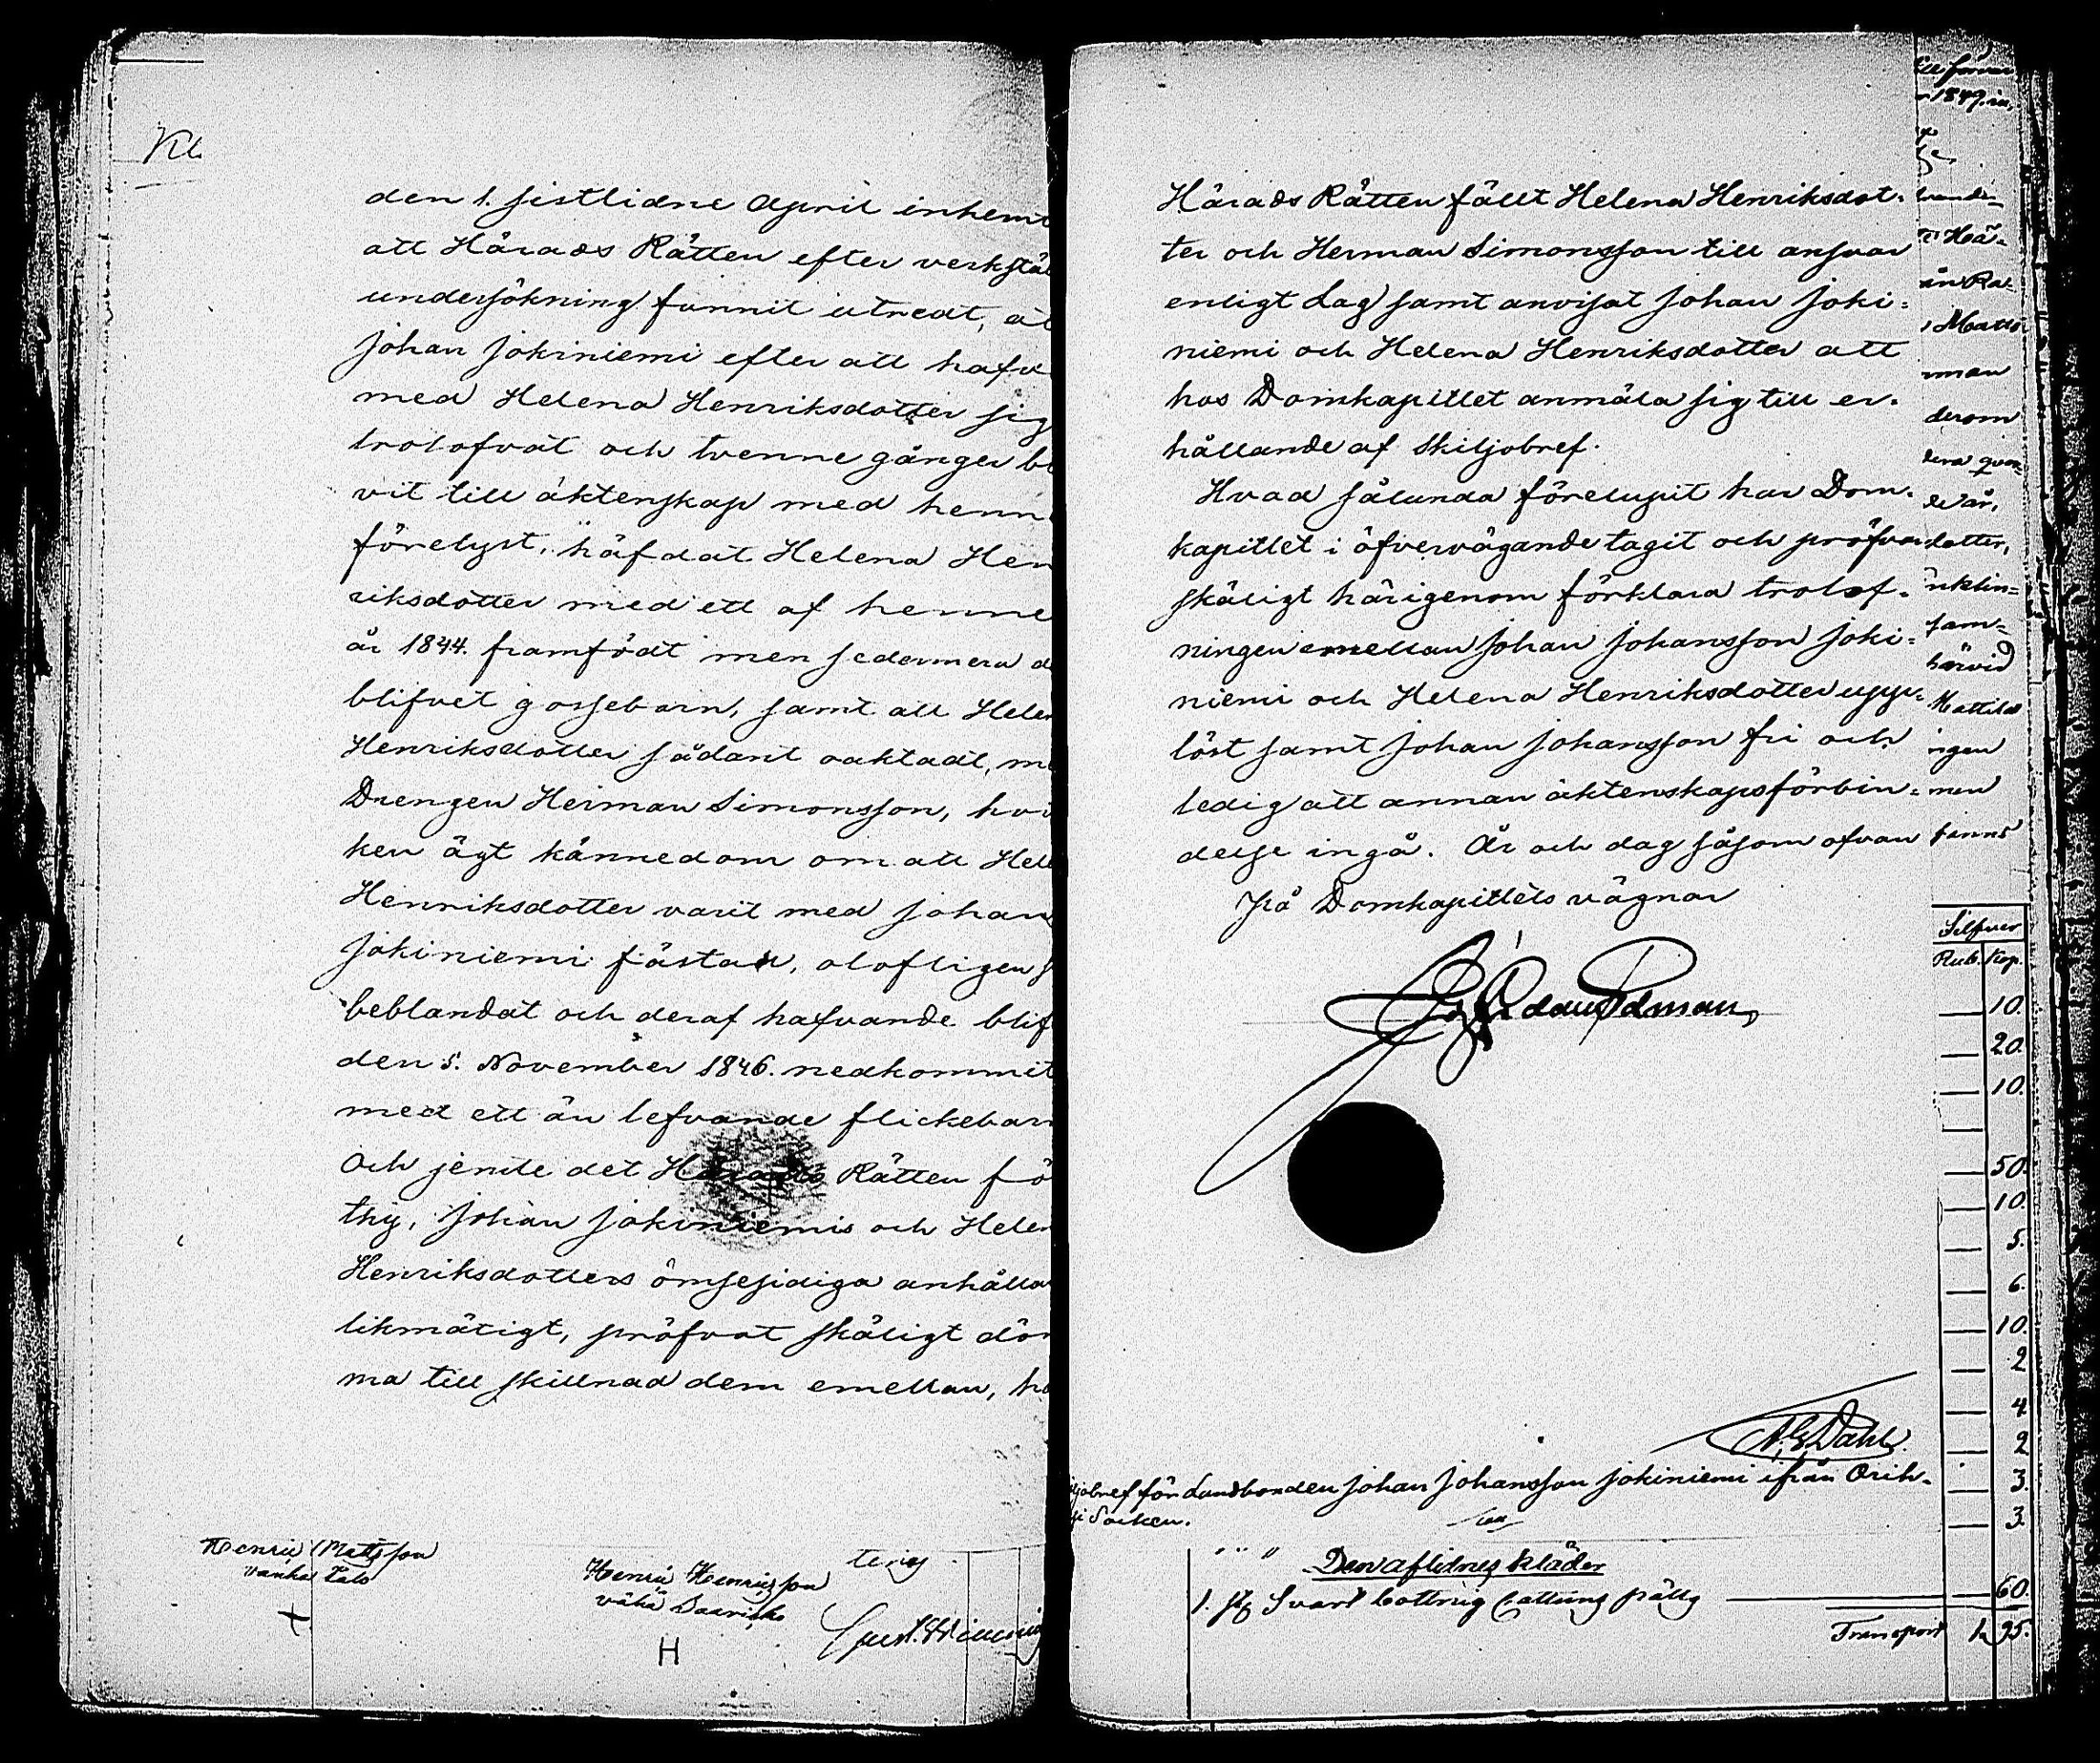 den 1. sistlidne April inhem
att Härads Rätten efter verkstä
undersökning funnit utredt, at
Johan Jokiniemi efter att hafv
med Helena Henriksdotter sig
trolofvat och tvenne gånger bl
vit till äktenskap med henn
förelyst, häfdat Helena Hen
riksdotter med ett af henne
år 1844. framfödt men sedermera d
blifvet gossebarn, samt att Helen
Henriksdotter sådant oaktadt, me
Drengen Herman Simonsson, hvi
ken ägt kännedom om att Hele
Henriksdotter varit med Johan
Jokiniemi fästad, olofligen s
beblandat och deraf hafvande blif
den 5. November 1846. nedkommit
med ett än lefvande flickebarn
Och jemte det Härads Rätten fö
thy, Johan Jokiniemis och Helen
Henriksdotters ömsesidiga anhållan
likmätigt, pröfvat skäligt döm
ma till skillnad dem emellan, ha
Henric Mattsson
vanha Talo
Henric Henricsson
vähä Saari
H
Härads Rätten fällt Helena Henriksdot-
ter och Herman Simonsson till ansvar
enligt Lag samt anvisat Johan Joki=
niemi och Helena Henriksdotter att
hos Domkapitlet anmäla sig till er-
hållande af Skiljobref.
Hvad sålunda förelupit har Dom-
kapitlet i öfvervägande tagit och pröfvar
skäligt härigenom förklara trolof-
ningen emellan Johan Johansson Joki=
niemi och Helena Henriksdotter upp-
löst samt Johan Johansson fri och
ledig att annan äktenskapsförbin=
delse ingå. År och dag såsom ofvan
På Domkapitlets vägnar
Dahl
jobref för Landbonden Johan Johansson Jokiniemi ifrån Orih-
Socken.
Den aflidnes kläder
1. st Svart
60.
Transport 1 95.
1849.
Hä-
Matts
derom
dotter,
härvid
ingen
men
finns
Silfver
Rub. Kop.
10.
20.
10.
50.
10.
5.
6.
10.
2
4
2
3.
3.